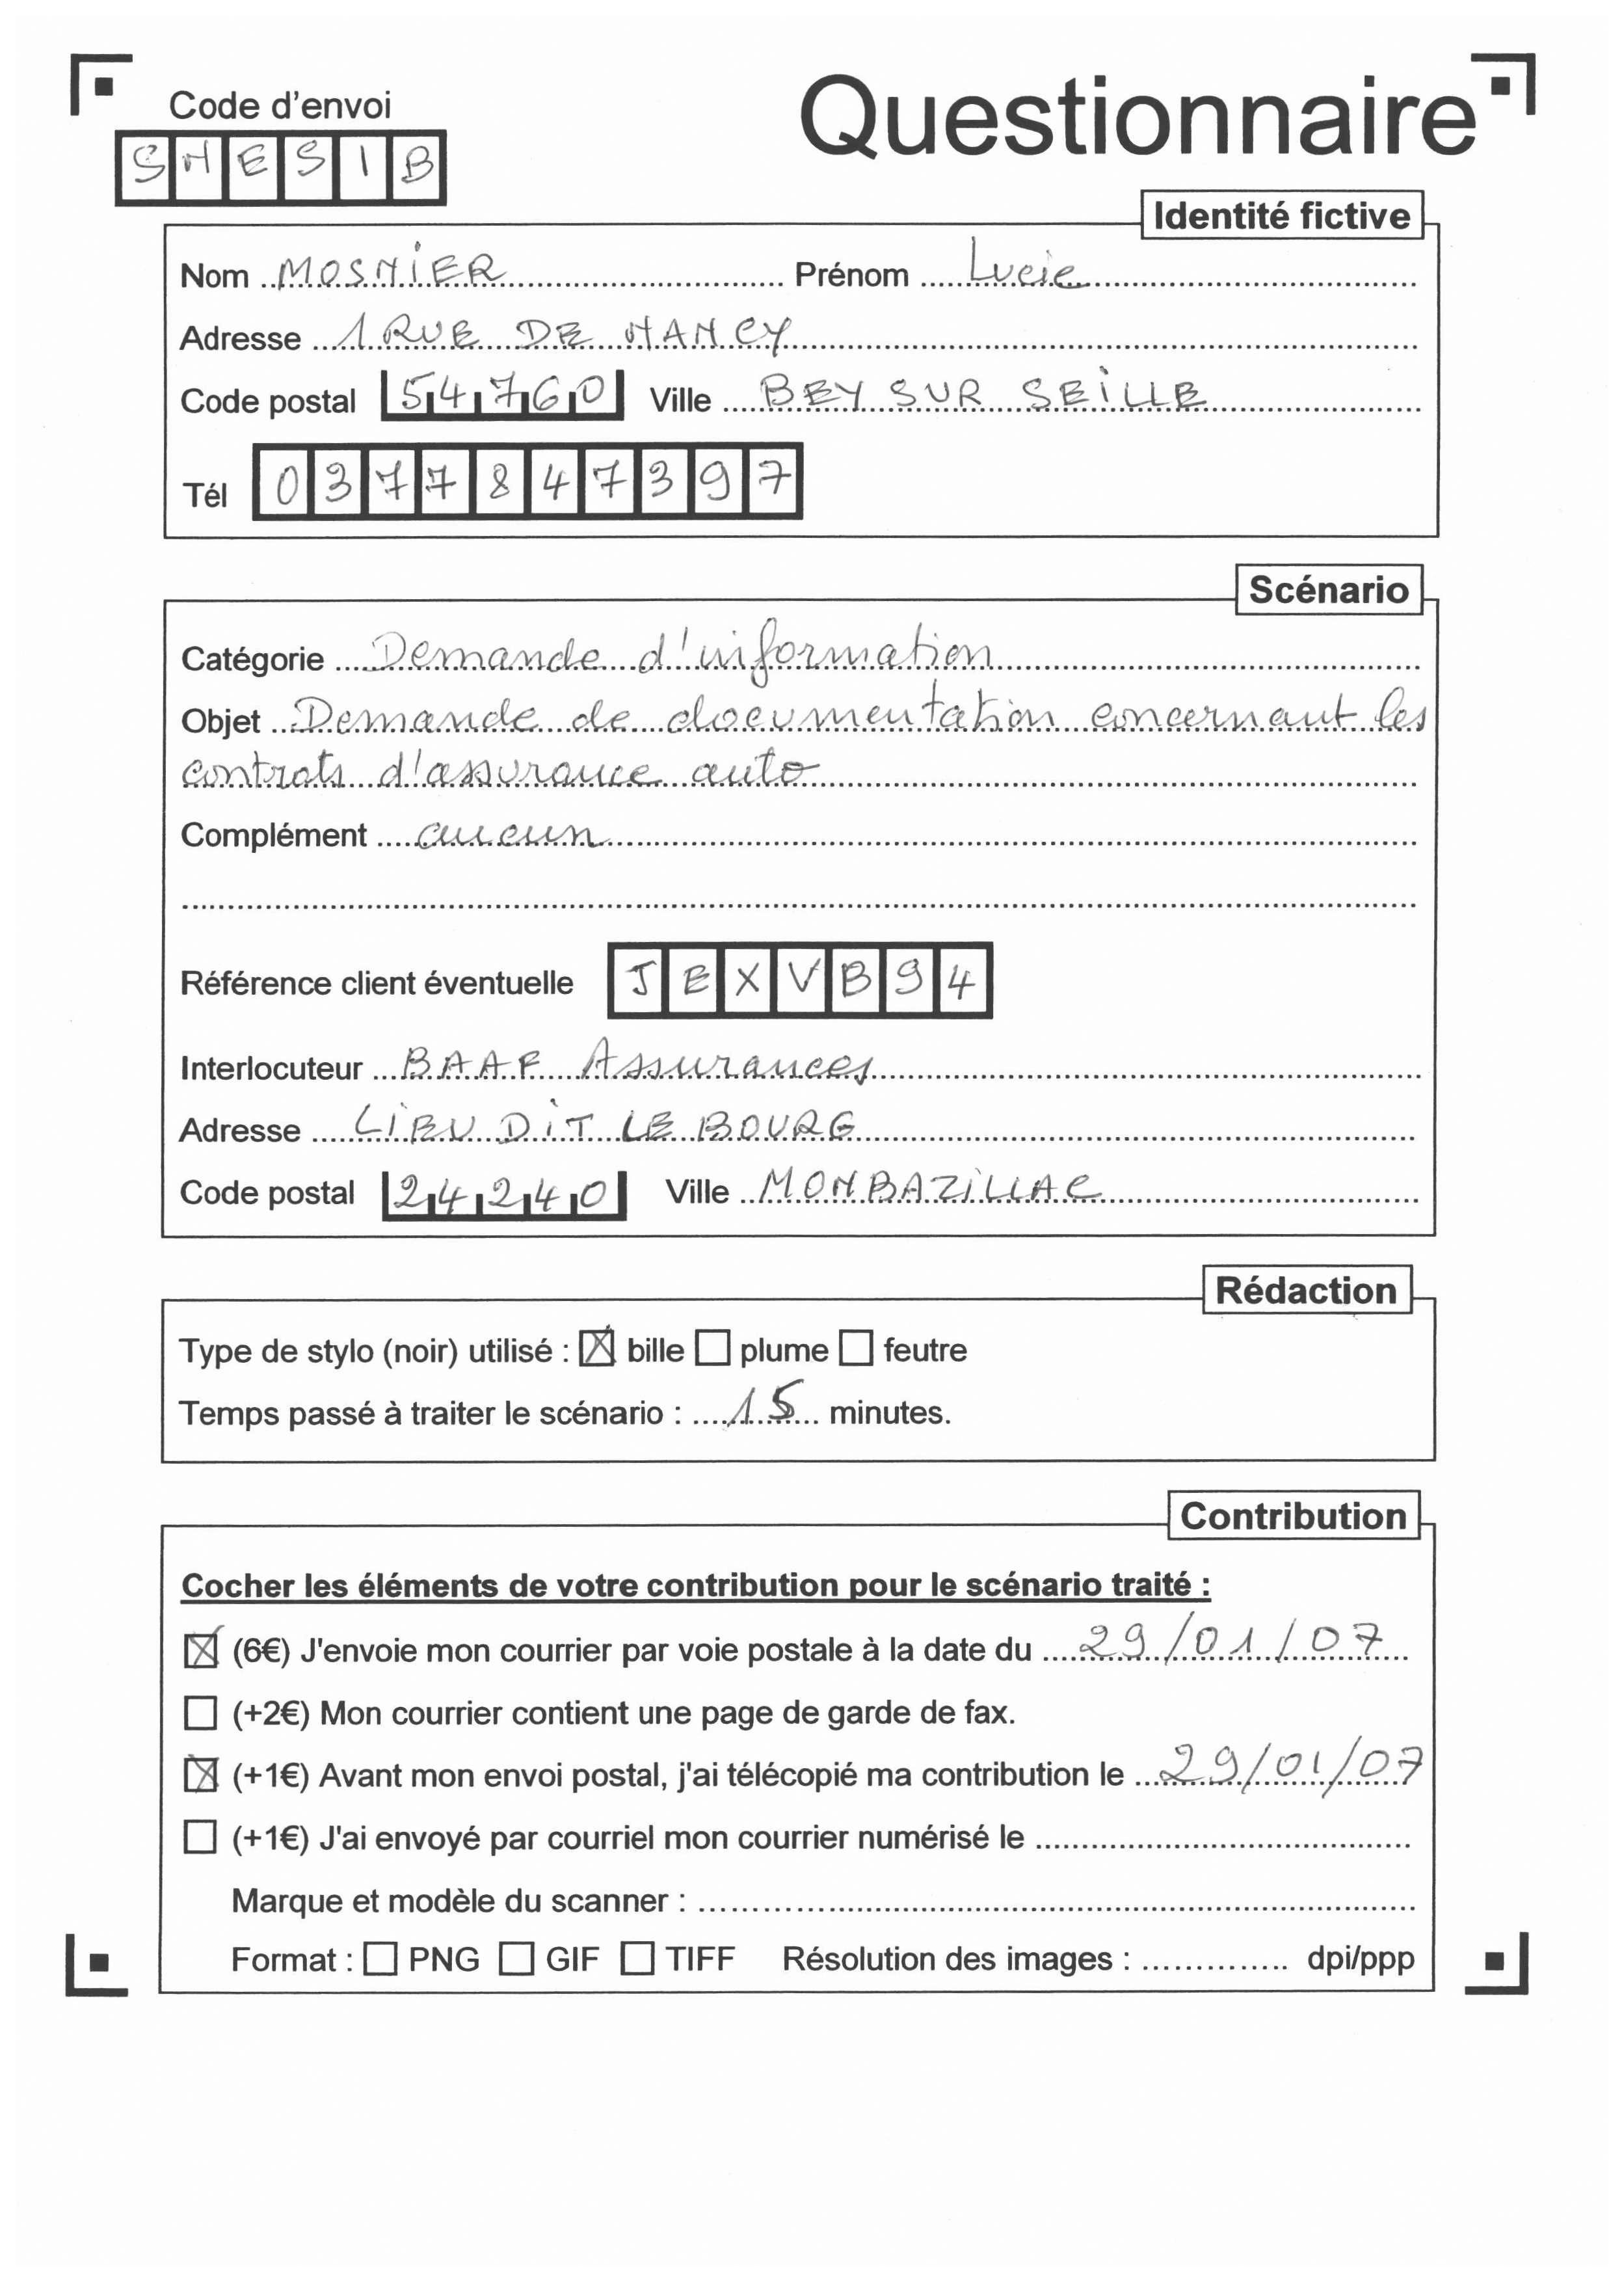 Code d'envoi
Questionnaire
SNESIB
Identité fictive
Nom MOSNiER Prénom Lucie
Adresse 1 RUE DE NANCY
Code postal 54760 Ville BEY SUR SEiLLE
Tél 0377847397
Scénario
Catégorie Demande d'information
Objet Demande de documentation concernant les
contrats d'assurance auto
Complément aucun
Référence client éventuelle JEXVB94
Interlocuteur BAAF Assurances
Adresse LiEU DiT LE BOURG
Code postal 24240 Ville MONBAZiLLAC
Rédaction
Type de stylo (noir) utilisé : ☒ bille ☐ plume ☐ feutre
Temps passé à traiter le scénario : 15 minutes.
Contribution
Cocher les éléments de votre contribution pour le scénario traité :
☒ (6€) J'envoie mon courrier par voie postale à la date du 29/01/07
☐ (+2€) Mon courrier contient une page de garde de fax.
☒ (+1€) Avant mon envoi postal, j'ai télécopié ma contribution le 29/01/07
☐ (+1€) J'ai envoyé par courriel mon courrier numérisé le
Marque et modèle du scanner :
Format : ☐ PNG ☐ GIF ☐ TIFF Résolution des images : dpi/ppp